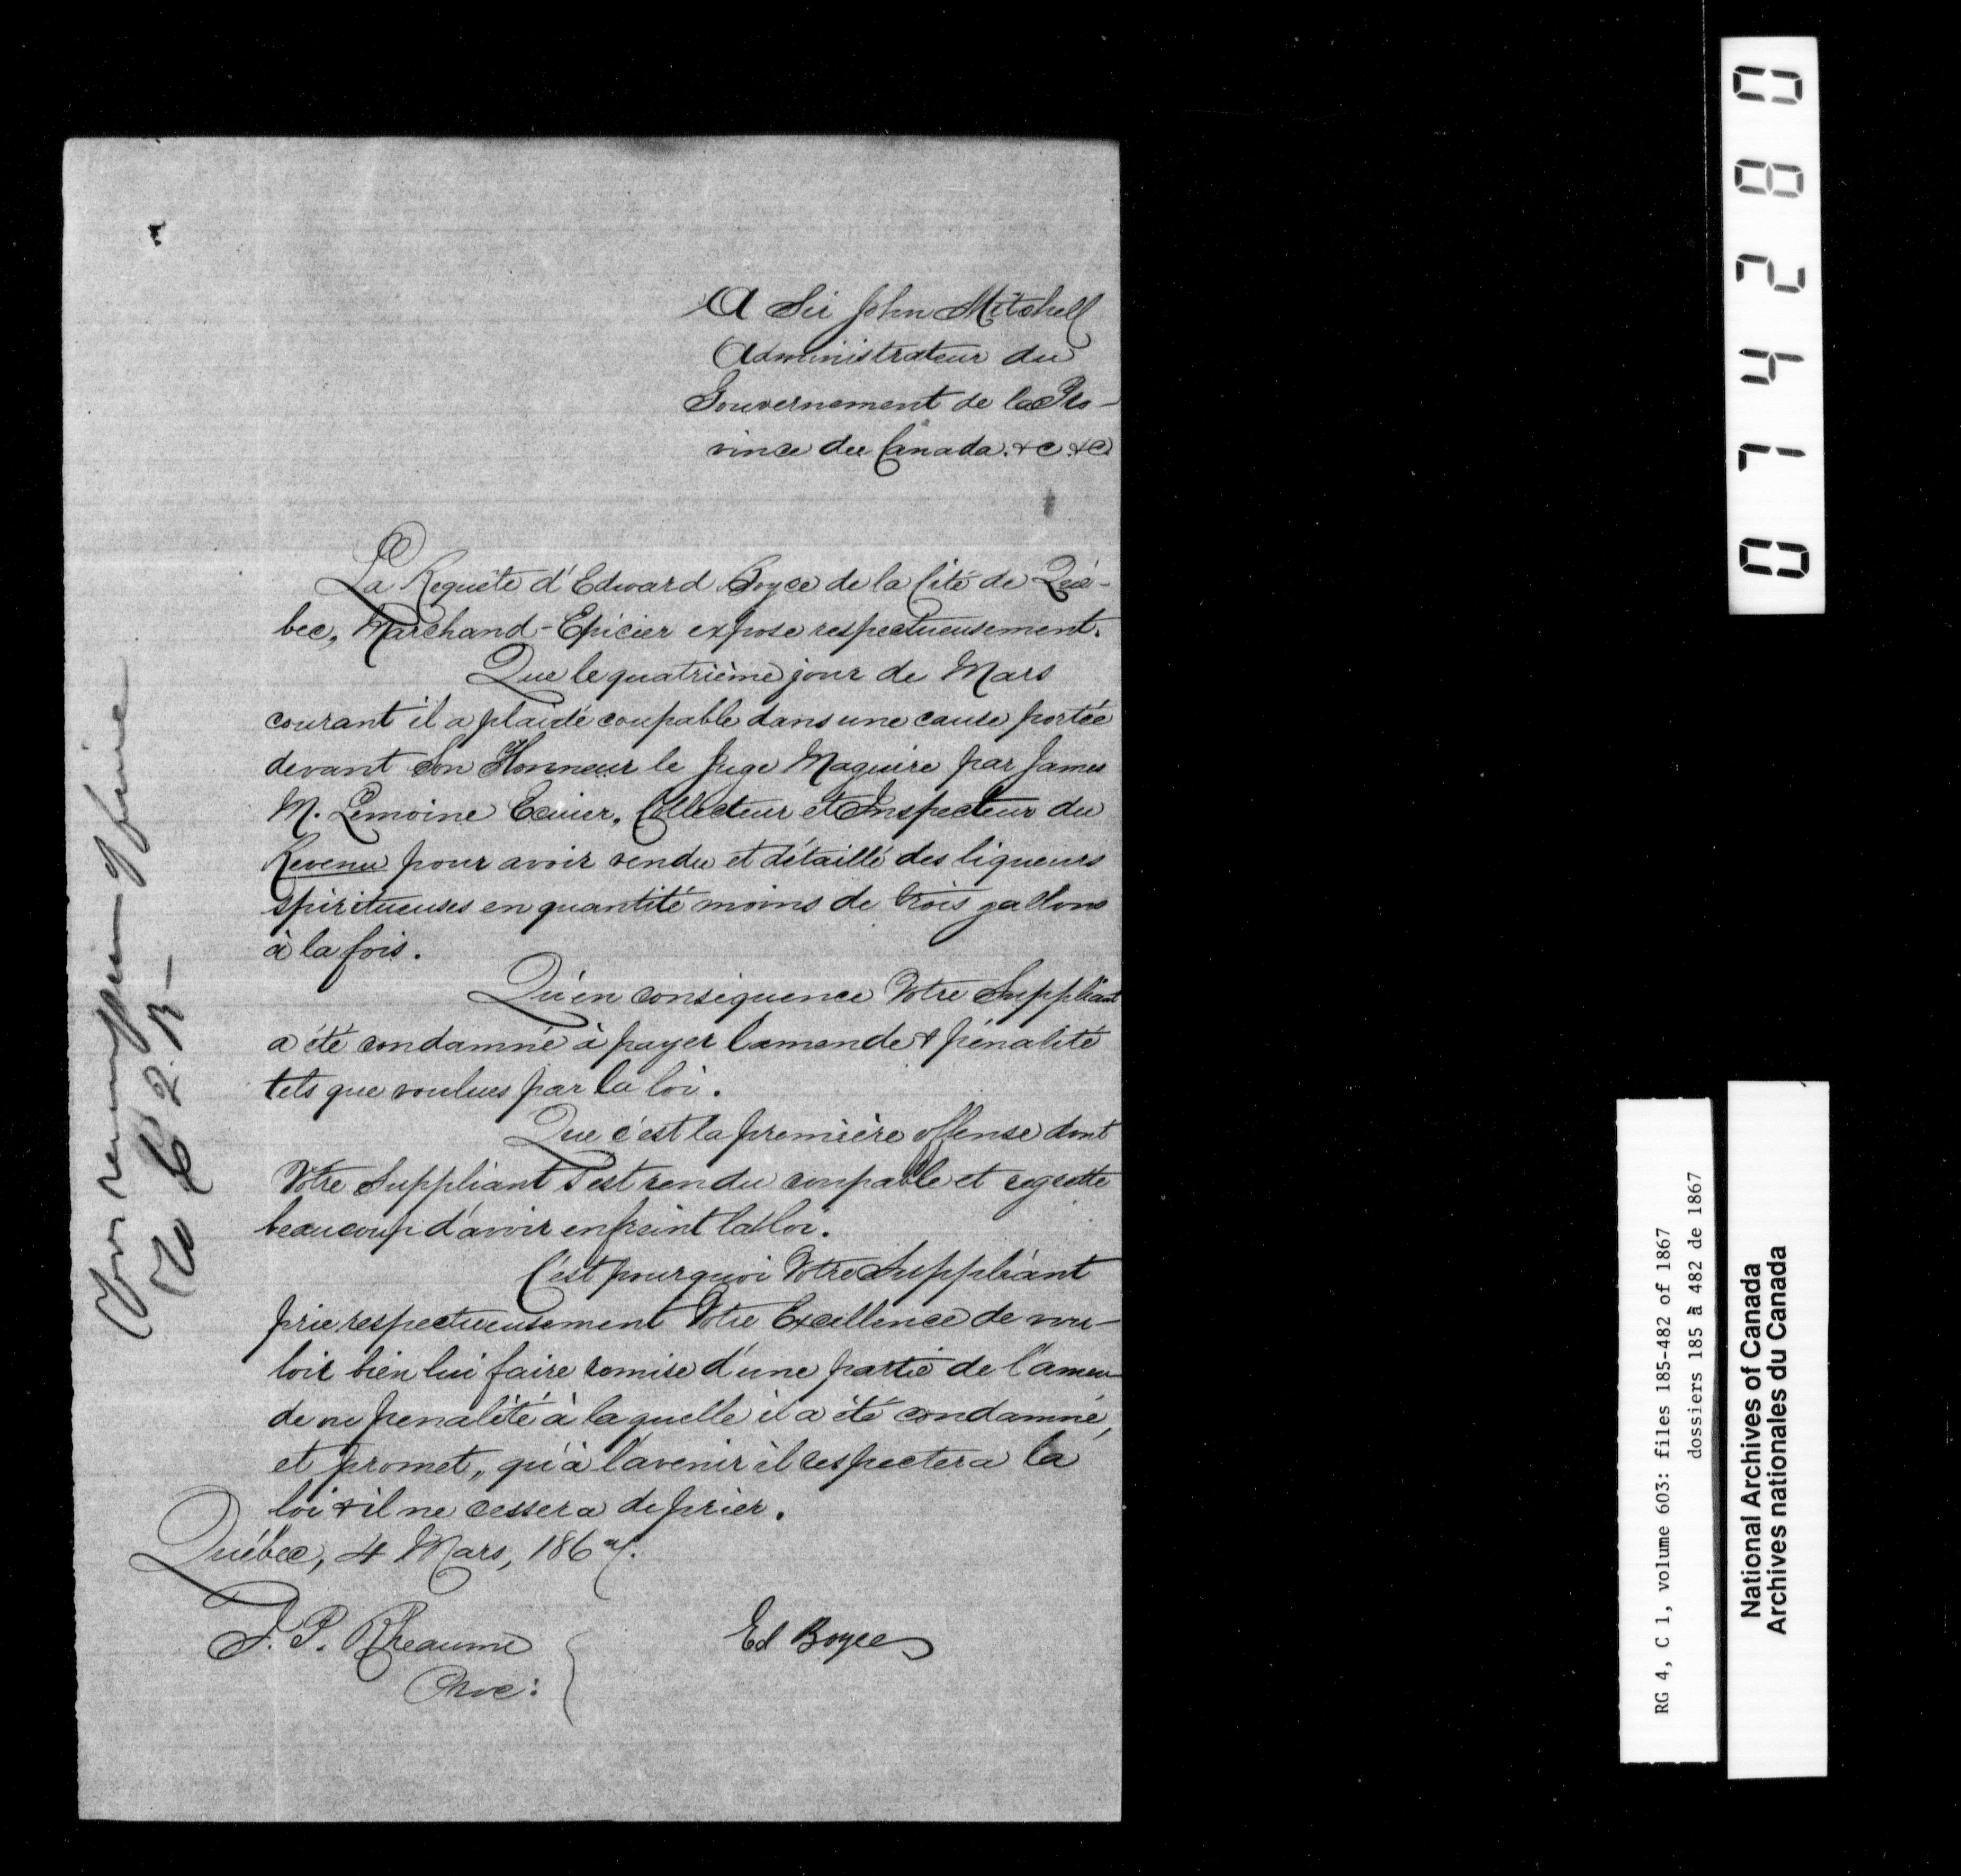 A Sir John Mitchell
Administrateur du
Gouvernement de la Pro-
vince du Canada. &c &c
La Requête d'Edward Boyce de la Cité de Qué-
bec, Marchand-Epicier expose respectueusement.
Que le quatrième jour de Mars
courant il a plaidé coupable dans une cause portée
devant Son Honneur le Juge Maguire par James
M. Lemoine Ecuier, Collecteur et Inspecteur du
Revenu pour avoir vendu et détaillé des liqueurs
spiritueuses en quantité moins de trois gallons
à la fois.
Qu'en conséquence Votre Suppliant
a été condamné à payer l'amende & pénalité
tels que voulues par la loi.
Que c'est la première offense dont
Votre Suppliant s'est rendu coupable et regrette
beaucoup d'avoir enfreint la loi.
C'est pourquoi Votre Suppliant
prie respectueusement Votre Excellence de vou-
loir bien lui faire remise d'une partie de l'amen-
de ou penalité à laquelle il a été condamné,
et promet, qu'à l'avenir il respectera la
loi & il ne cessera de prier.
Québec, 4 Mars, 1867.
J. P. Rheaume
Avoc:
Ed Boyce
For remission of fine
074280
RG 4, C 1, volume 603: files 185-482 of 1867
dossiers 185 à 482 de 1867
National Archives of Canada
Archives nationales du Canada